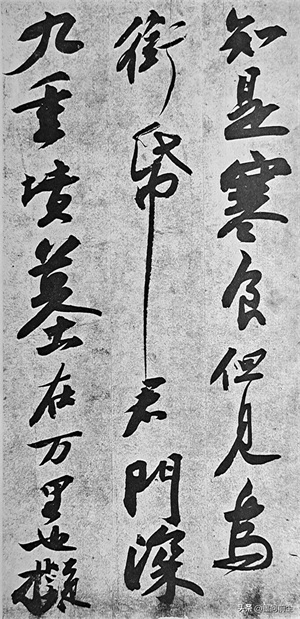 知是寒食但見烏
銜帋君門深
九重墳墓在万里也擬
头条